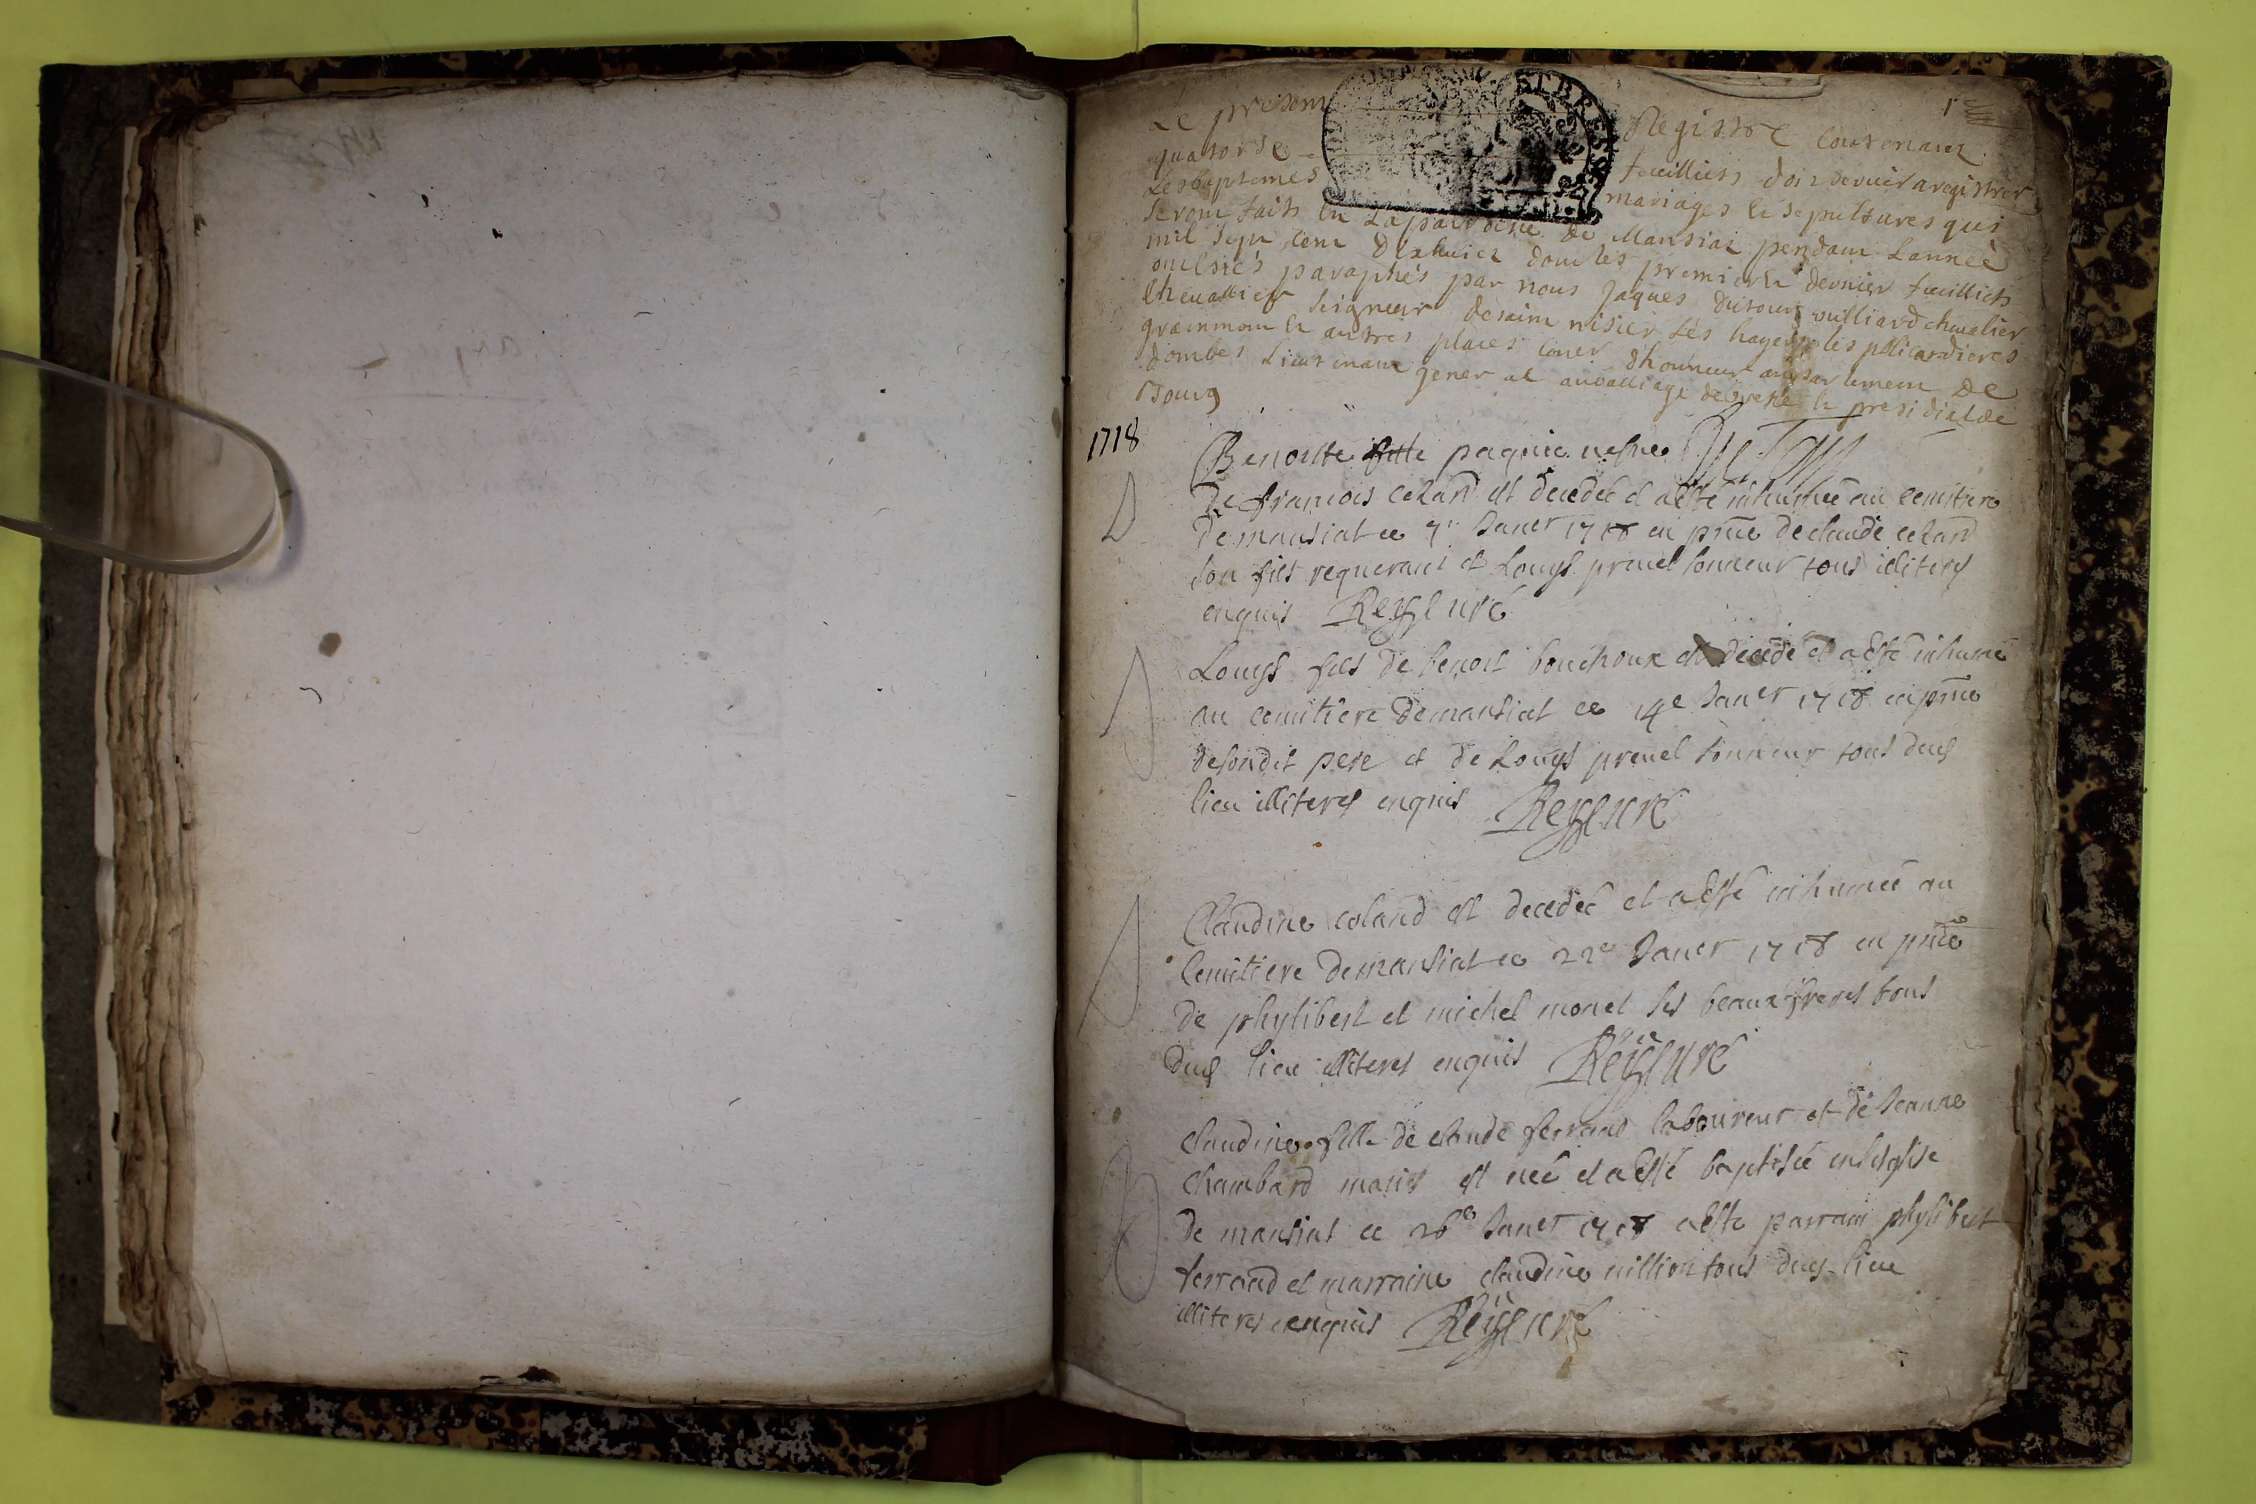 1
Le present Registre contenant
quatorse feuillets doit servir a registrer
Les baptemes mariages & sepultures qui
seront faits en La parroisse de Mansiat pendant L'année
mil sept cent dixhuict dont les premier & dernier feuillets
ont estés paraphés par nous Jaques dutour vulliard chevalier
Chevallier Seigneur de saint nisier Les hayes les
grammont & autres places Coner d'honneur au parlement De
dombes Lieutenant general au bailliage de bresse & presidial de
Bourg
1718
Benoiste fille pagnie vefve DuTour
De francois coland est decedée et a esté inhumée au cemitiere
De mansiat ce 7e Janer 1718 en pnce de claude coland
son fils requerant et Louys prevel sonneur tous illiteres
enquis Rey curé
Louys fils de benoit bouchoux est decedé et a esté inhumé
au cemitiere de mansiat ce 14e Janer 1718 en pnce
de sondit pere et de Louys prevel sonneur tous dud
lieu illiteres enquis Rey curé
Claudine coland est decedée et a esté inhumée au
Cemitiere de mansiat ce 22e Janer 1718 en pnce
de phylibert et michel monet ses beaux freres tous
dud lieu illiteres enquis Rey curé
Claudine fille de claude ferrand laboureur et de Jeanne
Chambard mariés est née et a esté baptisée en l'esglise
de mansiat ce 26e Janer 1718 a esté parrain phylibert
ferrand et marraine claudine tous dud lieu
illiteres enquis Rey curé